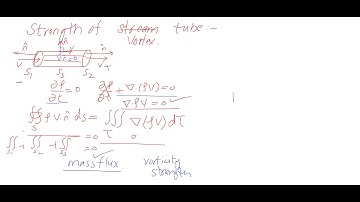 Strength of stream tube:-
Vortex.
n̂ n̂ n̂
v v·n̂=0 v
S₁ S₃ S₂
∂ρ/∂t = 0 ∂ρ/∂t + ∇·(ρV) = 0
∇·ρV = 0
∯ ρ v·n̂ ds = ∭ ∇·(ρV) dτ
S τ
∬ + ∬ + ∬ = 0 0
S₁ S₂ S₃ = 0
mass flux vorticity
strength